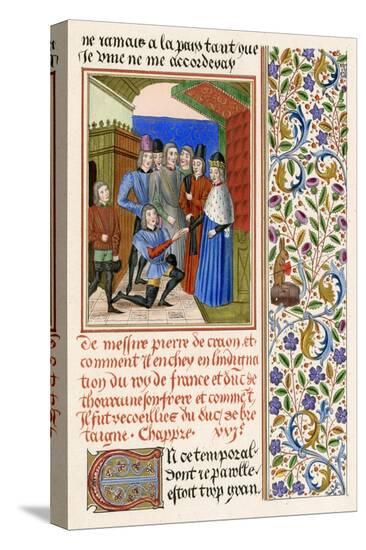 ne ramais a la pays tant que
Je vive ne me accorderay
De messire pierre de craon et
comment il en chey en lindigna
tion du roy de france et duc de
thouraine son frere et commēt
il fut recoeillies du duc de bre
taigne. Chappre. xvj.
En ce temporal
dont je parolle
estoit trop gran